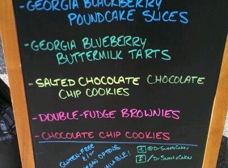 - GEORGIA BLACKBERRY
POUNDCAKE SLICES
- GEORGIA BLUEBERRY
BUTTERMILK TARTS
- SALTED CHOCOLATE CHOCOLATE
CHIP COOKIES
- DOUBLE-FUDGE BROWNIES
- CHOCOLATE CHIP COOKIES
GLUTEN-FREE
OPTIONS
AVAILABLE!